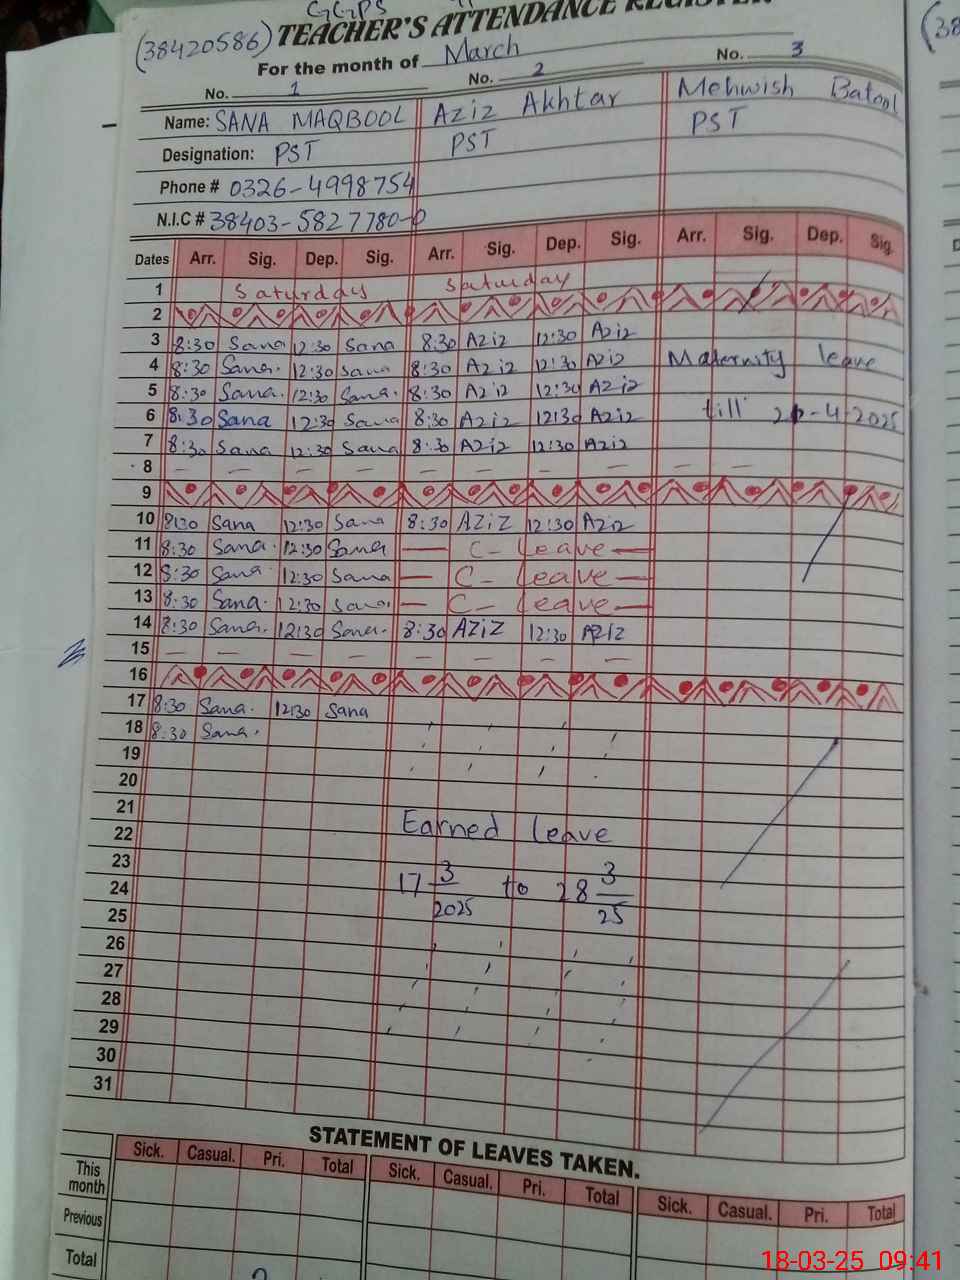 GGPS
(38420586) TEACHER'S ATTENDANCE REGISTER
For the month of March
No. 1 No. 2 No. 3
Name: SANA MAQBOOL Aziz Akhtar Mehwish Batool
Designation: PST PST PST
Phone # 0326-4998754
N.I.C # 38403-5827780-0
Dates Arr. Sig. Dep. Sig. Arr. Sig. Dep. Sig. Arr. Sig. Dep. Sig.
1 Saturday Saturday
2
3 8:30 Sana 12:30 Sana 8:30 Aziz 12:30 Aziz
4 8:30 Sana. 12:30 Sana 8:30 Aziz 12:30 Aziz Maternity leave
5 8:30 Sana. 12:30 Sana. 8:30 Aziz 12:30 Aziz
6 8:30 Sana 12:30 Sana 8:30 Aziz 12:30 Aziz till -4-2025
7 8:30 Sana 12:30 Sana 8:30 Aziz 12:30 Aziz
8 — — — — — — — — — —
9
10 8:30 Sana 12:30 Sana 8:30 AZiZ 12:30 Aziz
11 8:30 Sana. 12:30 Sana — C- Leave —
12 8:30 Sana. 12:30 Sana — C- Leave —
13 8:30 Sana. 12:30 Sana. — C- Leave —
14 8:30 Sana. 12:30 Sana. 8:30 AZiZ 12:30 AZIZ
15 — — — — — — — —
16
17 8:30 Sana. 12:30 Sana
18 8:30 Sana.
19
20
21
22 Earned leave
23
24 17 3/2025 to 28 3/25
25
26
27
28
29
30
31
STATEMENT OF LEAVES TAKEN.
Sick. Casual. Pri. Total Sick. Casual. Pri. Total Sick. Casual. Pri. Total
This month
Previous
Total
18-03-25 09:41